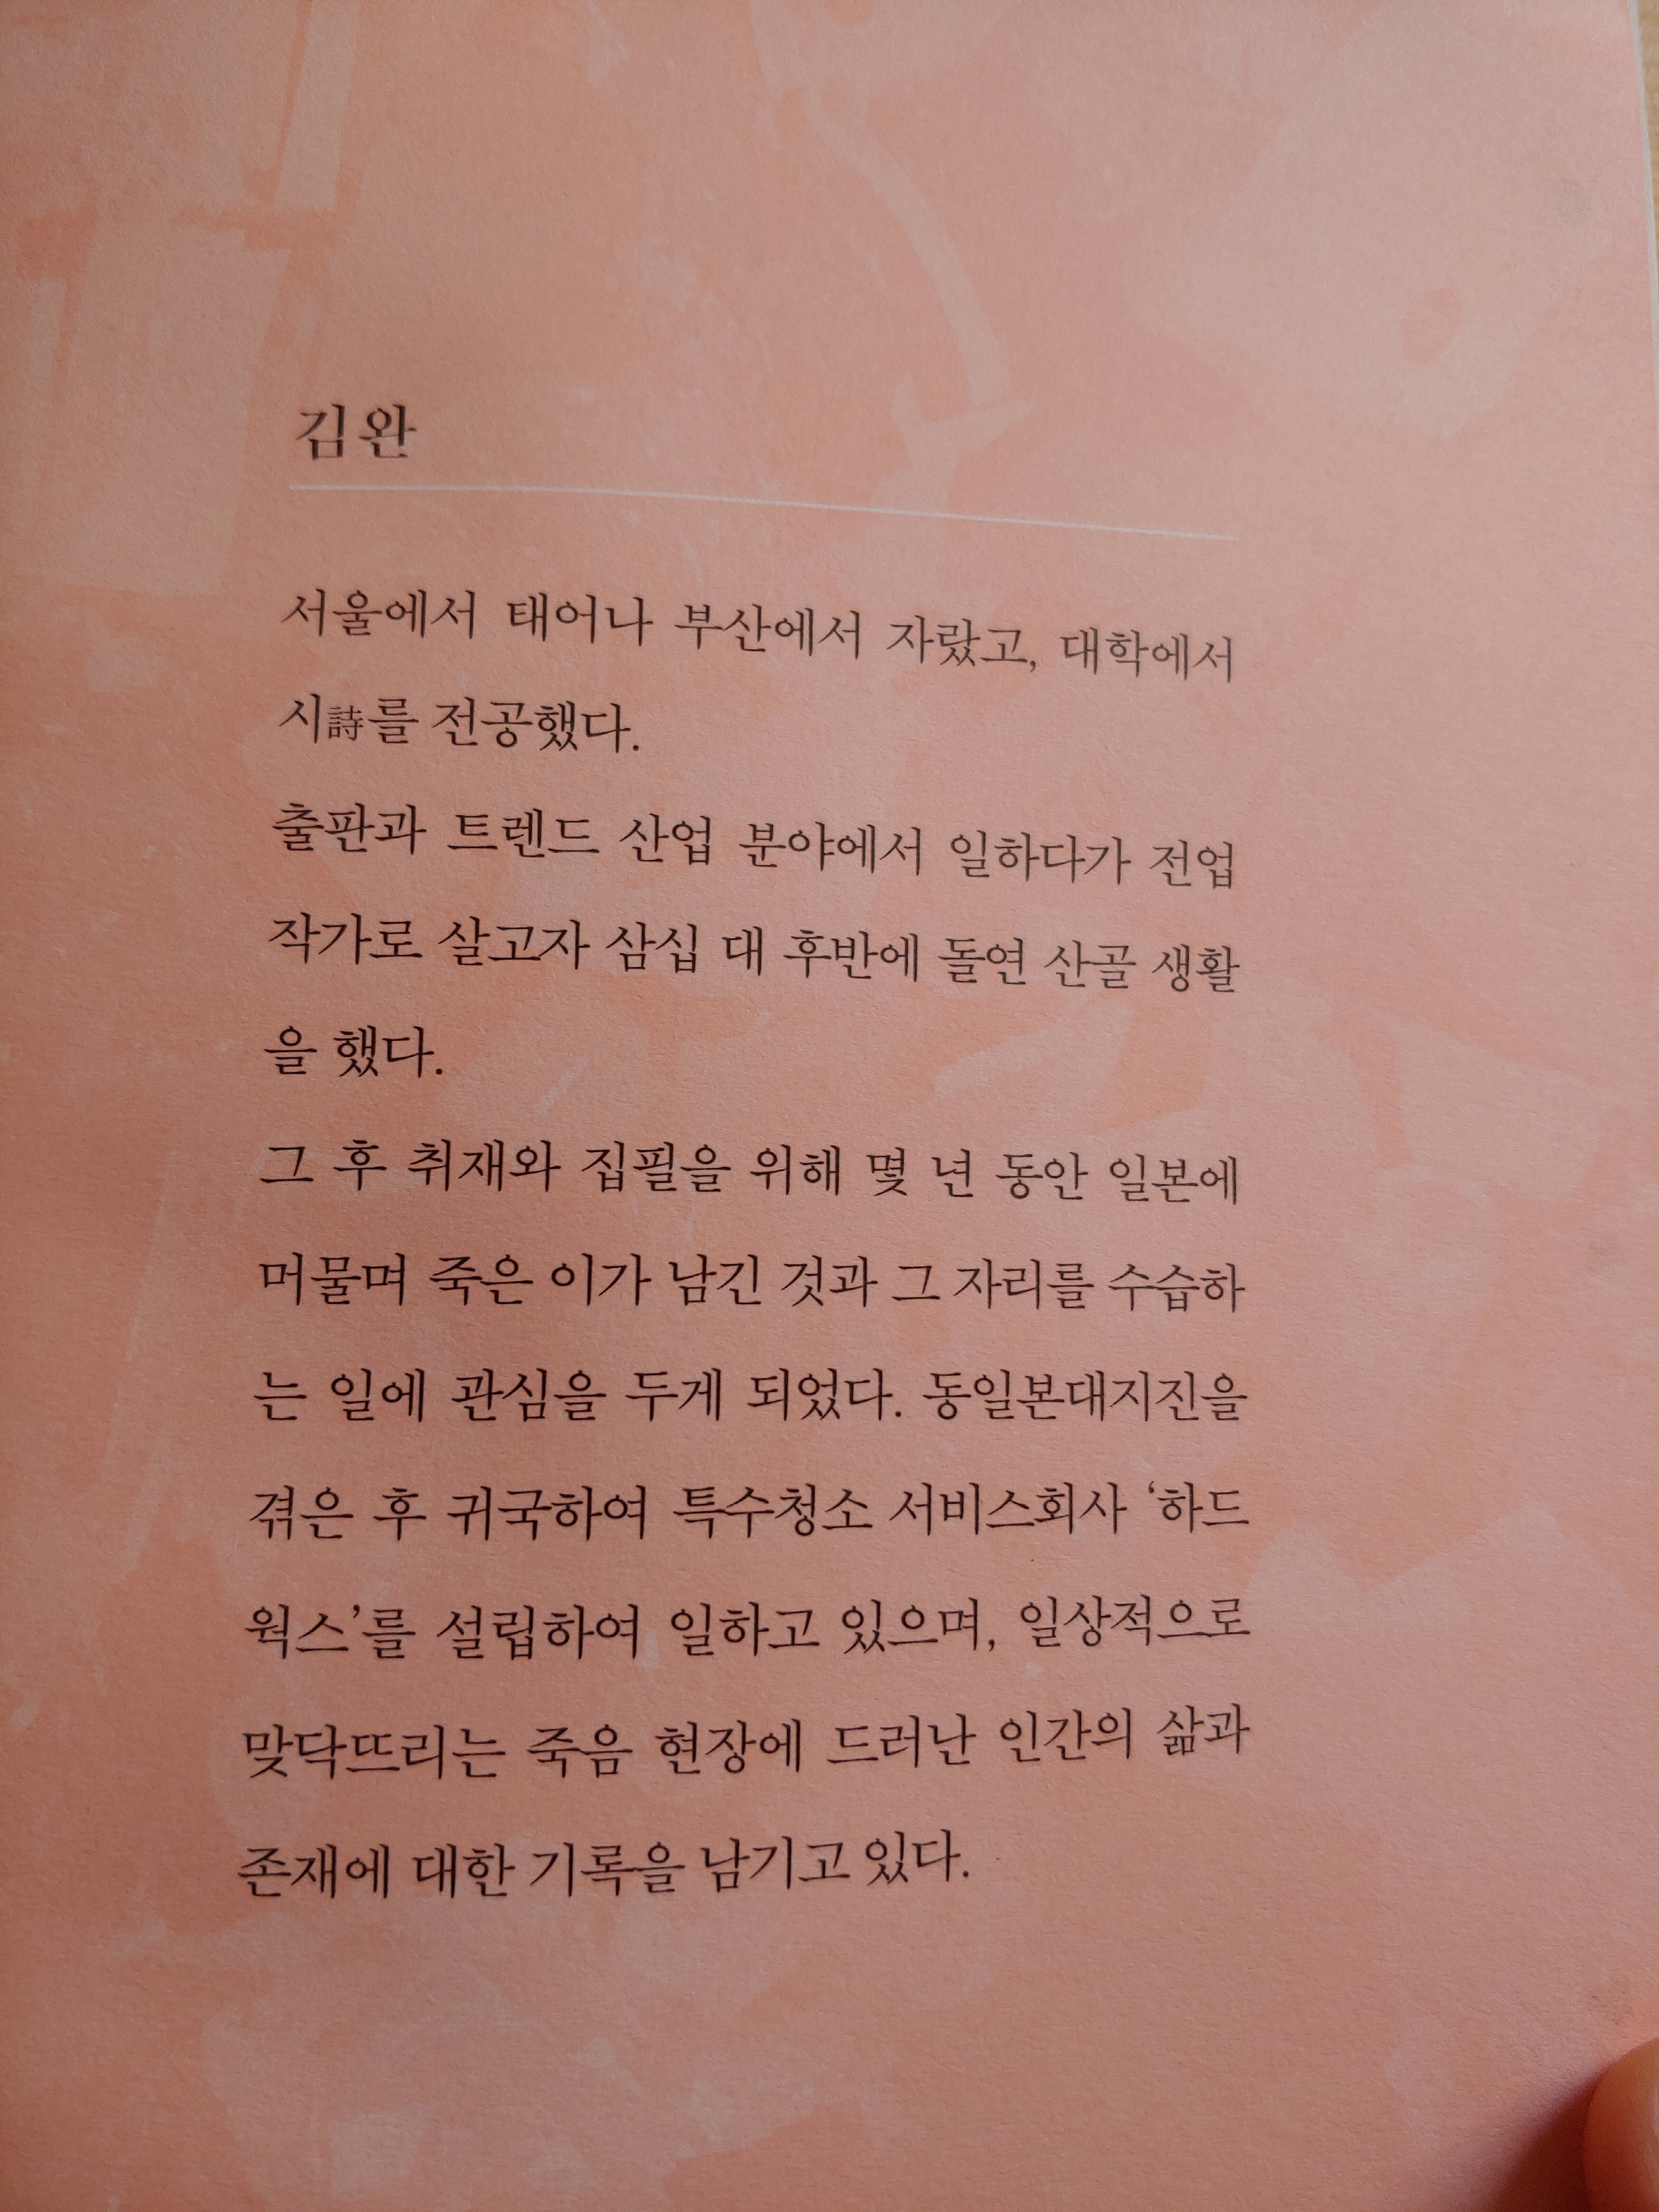 김완
서울에서 태어나 부산에서 자랐고, 대학에서
시詩를 전공했다.
출판과 트렌드 산업 분야에서 일하다가 전업
작가로 살고자 삼십 대 후반에 돌연 산골 생활
을 했다.
그 후 취재와 집필을 위해 몇 년 동안 일본에
머물며 죽은 이가 남긴 것과 그 자리를 수습하
는 일에 관심을 두게 되었다. 동일본대지진을
겪은 후 귀국하여 특수청소 서비스회사 ‘하드
웍스’를 설립하여 일하고 있으며, 일상적으로
맞닥뜨리는 죽음 현장에 드러난 인간의 삶과
존재에 대한 기록을 남기고 있다.